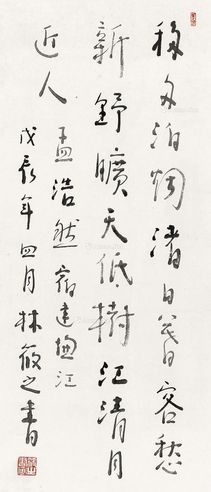 移舟泊烟渚日暮客愁
新野曠天低樹江清月
近人
孟浩然宿建德江
戊辰年四月林筱之書